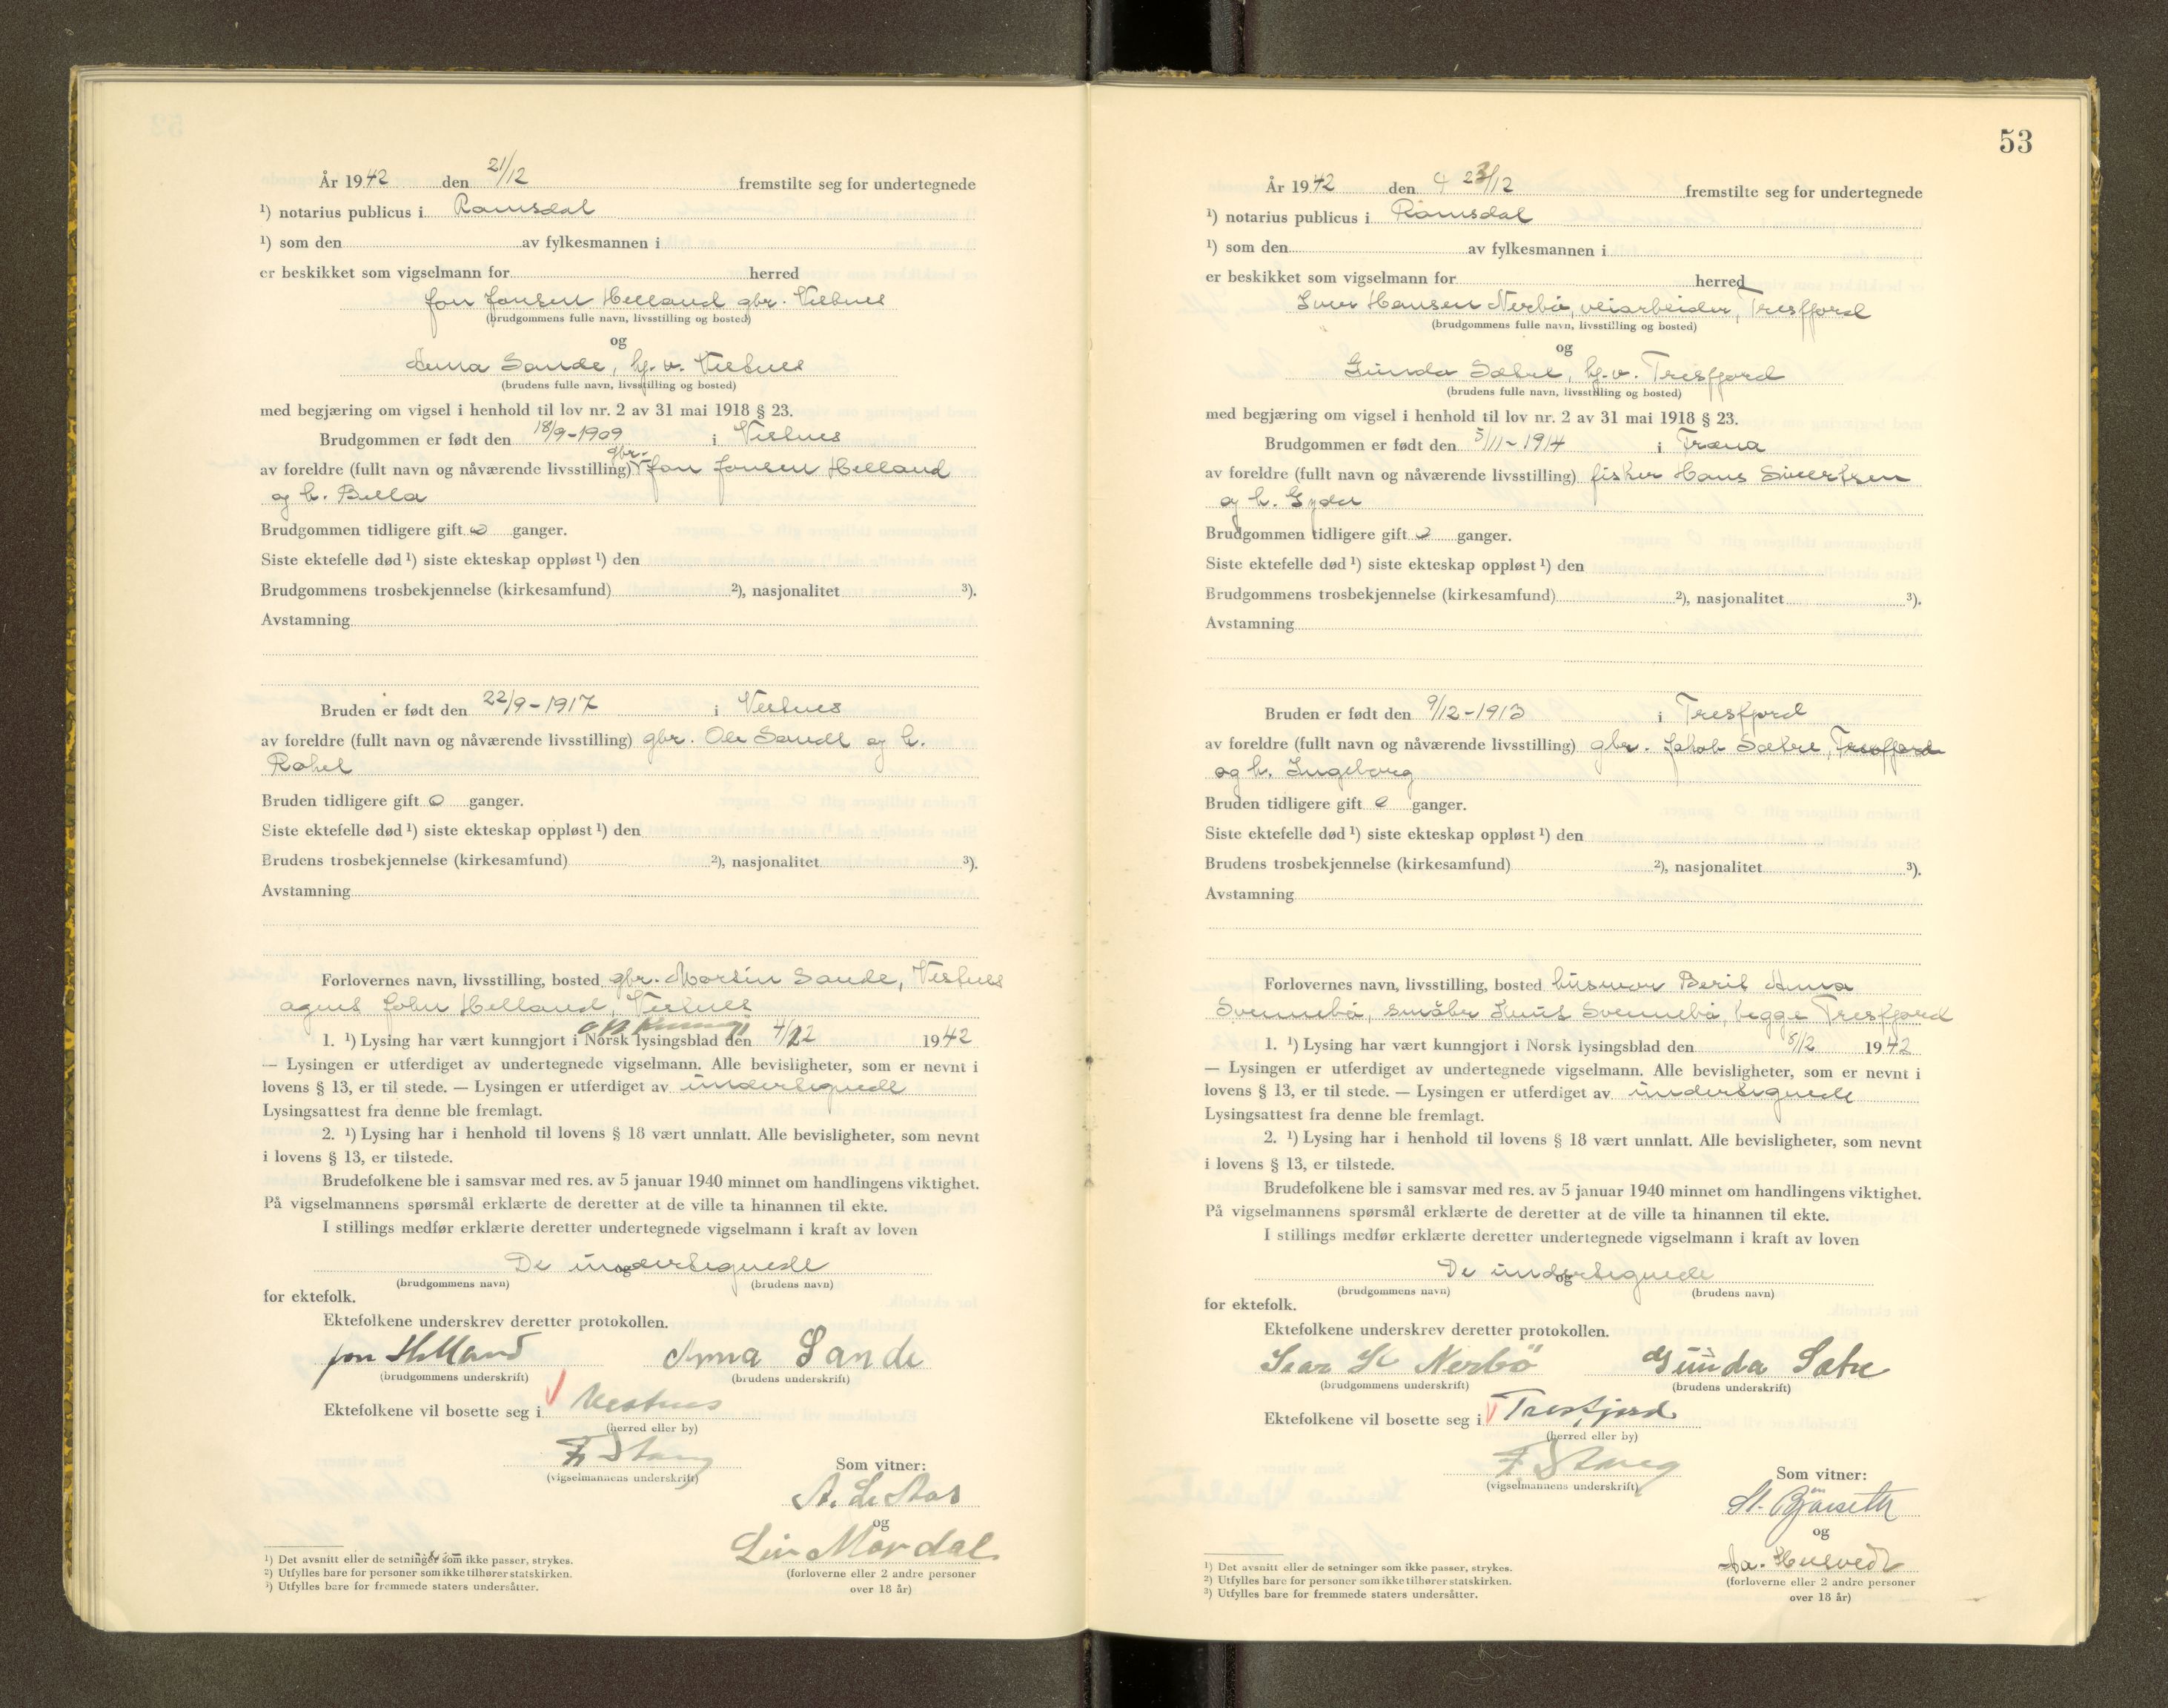 År 1942 den 21/12 fremstilte seg for undertegnede
¹) notarius publicus i Romsdal
¹) som den av fylkesmannen i
er beskikket som vigselmann for herred
Jon Jonsen Helland gbr. Vestnes
(brudgommens fulle navn, livsstilling og bosted)
og
Anna Sande, hj.v. Vestnes
(brudens fulle navn, livsstilling og bosted)
med begjæring om vigsel i henhold til lov nr. 2 av 31 mai 1918 § 23.
Brudgommen er født den 18/9-1909 i Vestnes
av foreldre (fullt navn og nåværende livsstilling) gbr. Jon Jonsen Helland
og h. Bella
Brudgommen tidligere gift 0 ganger.
Siste ektefelle død ¹) siste ekteskap oppløst ¹) den
Brudgommens trosbekjennelse (kirkesamfund) ²), nasjonalitet ³).
Avstamning
Bruden er født den 22/9-1917 i Vestnes
av foreldre (fullt navn og nåværende livsstilling) gbr. Ole Sande og h.
Rahel
Bruden tidligere gift 0 ganger.
Siste ektefelle død ¹) siste ekteskap oppløst ¹) den
Brudens trosbekjennelse (kirkesamfund) ²), nasjonalitet ³).
Avstamning
Forlovernes navn, livsstilling, bosted gbr. Martin Sande, Vestnes
agent John Helland, Vestnes
1. ¹) Lysing har vært kunngjort i Norsk lysingsblad den 4/12 1942
— Lysingen er utferdiget av undertegnede vigselmann. Alle bevisligheter, som er nevnt i
lovens § 13, er til stede. — Lysingen er utferdiget av undertegnede
Lysingsattest fra denne ble fremlagt.
2. ¹) Lysing har i henhold til lovens § 18 vært unnlatt. Alle bevisligheter, som nevnt
i lovens § 13, er tilstede.
Brudefolkene ble i samsvar med res. av 5 januar 1940 minnet om handlingens viktighet.
På vigselmannens spørsmål erklærte de deretter at de ville ta hinannen til ekte.
I stillings medfør erklærte deretter undertegnede vigselmann i kraft av loven
De undertegnede
og
(brudgommens navn) (brudens navn)
for ektefolk.
Ektefolkene underskrev deretter protokollen.
Jon Helland Anna Sande
(brudgommens underskrift) (brudens underskrift)
Ektefolkene vil bosette seg i Vestnes
(herred eller by)
F Stang
(vigselmannens underskrift)
Som vitner:
og
Liv Mordal
(forloverne eller 2 andre personer
over 18 år)
¹) Det avsnitt eller de setninger som ikke passer, strykes.
²) Utfylles bare for personer som ikke tilhører statskirken.
³) Utfylles bare for fremmede staters undersåtter.
53
År 1942 den 23/12 fremstilte seg for undertegnede
¹) notarius publicus i Romsdal
¹) som den av fylkesmannen i
er beskikket som vigselmann for herred
Iver Hansen Nerbö, veiarbeider, Tresfjord
(brudgommens fulle navn, livsstilling og bosted)
og
Gunda Sætre, hj.v. Tresfjord
(brudens fulle navn, livsstilling og bosted)
med begjæring om vigsel i henhold til lov nr. 2 av 31 mai 1918 § 23.
Brudgommen er født den 5/11-1914 i Træna
av foreldre (fullt navn og nåværende livsstilling) fisker Hans Sivertsen
og h. Gyda
Brudgommen tidligere gift 0 ganger.
Siste ektefelle død ¹) siste ekteskap oppløst ¹) den
Brudgommens trosbekjennelse (kirkesamfund) ²), nasjonalitet ³).
Avstamning
Bruden er født den 9/12-1913 i Tresfjord
av foreldre (fullt navn og nåværende livsstilling) gbr. Jakob Sætre, Tresfjord
og h. Ingeborg
Bruden tidligere gift 0 ganger.
Siste ektefelle død ¹) siste ekteskap oppløst ¹) den
Brudens trosbekjennelse (kirkesamfund) ²), nasjonalitet ³).
Avstamning
Forlovernes navn, livsstilling, bosted husmor Berit Anna
Svennebö, småbr Knut Svennebö, begge Tresfjord
1. ¹) Lysing har vært kunngjort i Norsk lysingsblad den 8/12 1942
— Lysingen er utferdiget av undertegnede vigselmann. Alle bevisligheter, som er nevnt i
lovens § 13, er til stede. — Lysingen er utferdiget av undertegnede
Lysingsattest fra denne ble fremlagt.
2. ¹) Lysing har i henhold til lovens § 18 vært unnlatt. Alle bevisligheter, som nevnt
i lovens § 13, er tilstede.
Brudefolkene ble i samsvar med res. av 5 januar 1940 minnet om handlingens viktighet.
På vigselmannens spørsmål erklærte de deretter at de ville ta hinannen til ekte.
I stillings medfør erklærte deretter undertegnede vigselmann i kraft av loven
De undertegnede
og
(brudgommens navn) (brudens navn)
for ektefolk.
Ektefolkene underskrev deretter protokollen.
Ivar H Nerbö Gunda Sætre
(brudgommens underskrift) (brudens underskrift)
Ektefolkene vil bosette seg i Tresfjord
(herred eller by)
F Stang
(vigselmannens underskrift)
Som vitner:
og
(forloverne eller 2 andre personer
over 18 år)
¹) Det avsnitt eller de setninger som ikke passer, strykes.
²) Utfylles bare for personer som ikke tilhører statskirken.
³) Utfylles bare for fremmede staters undersåtter.